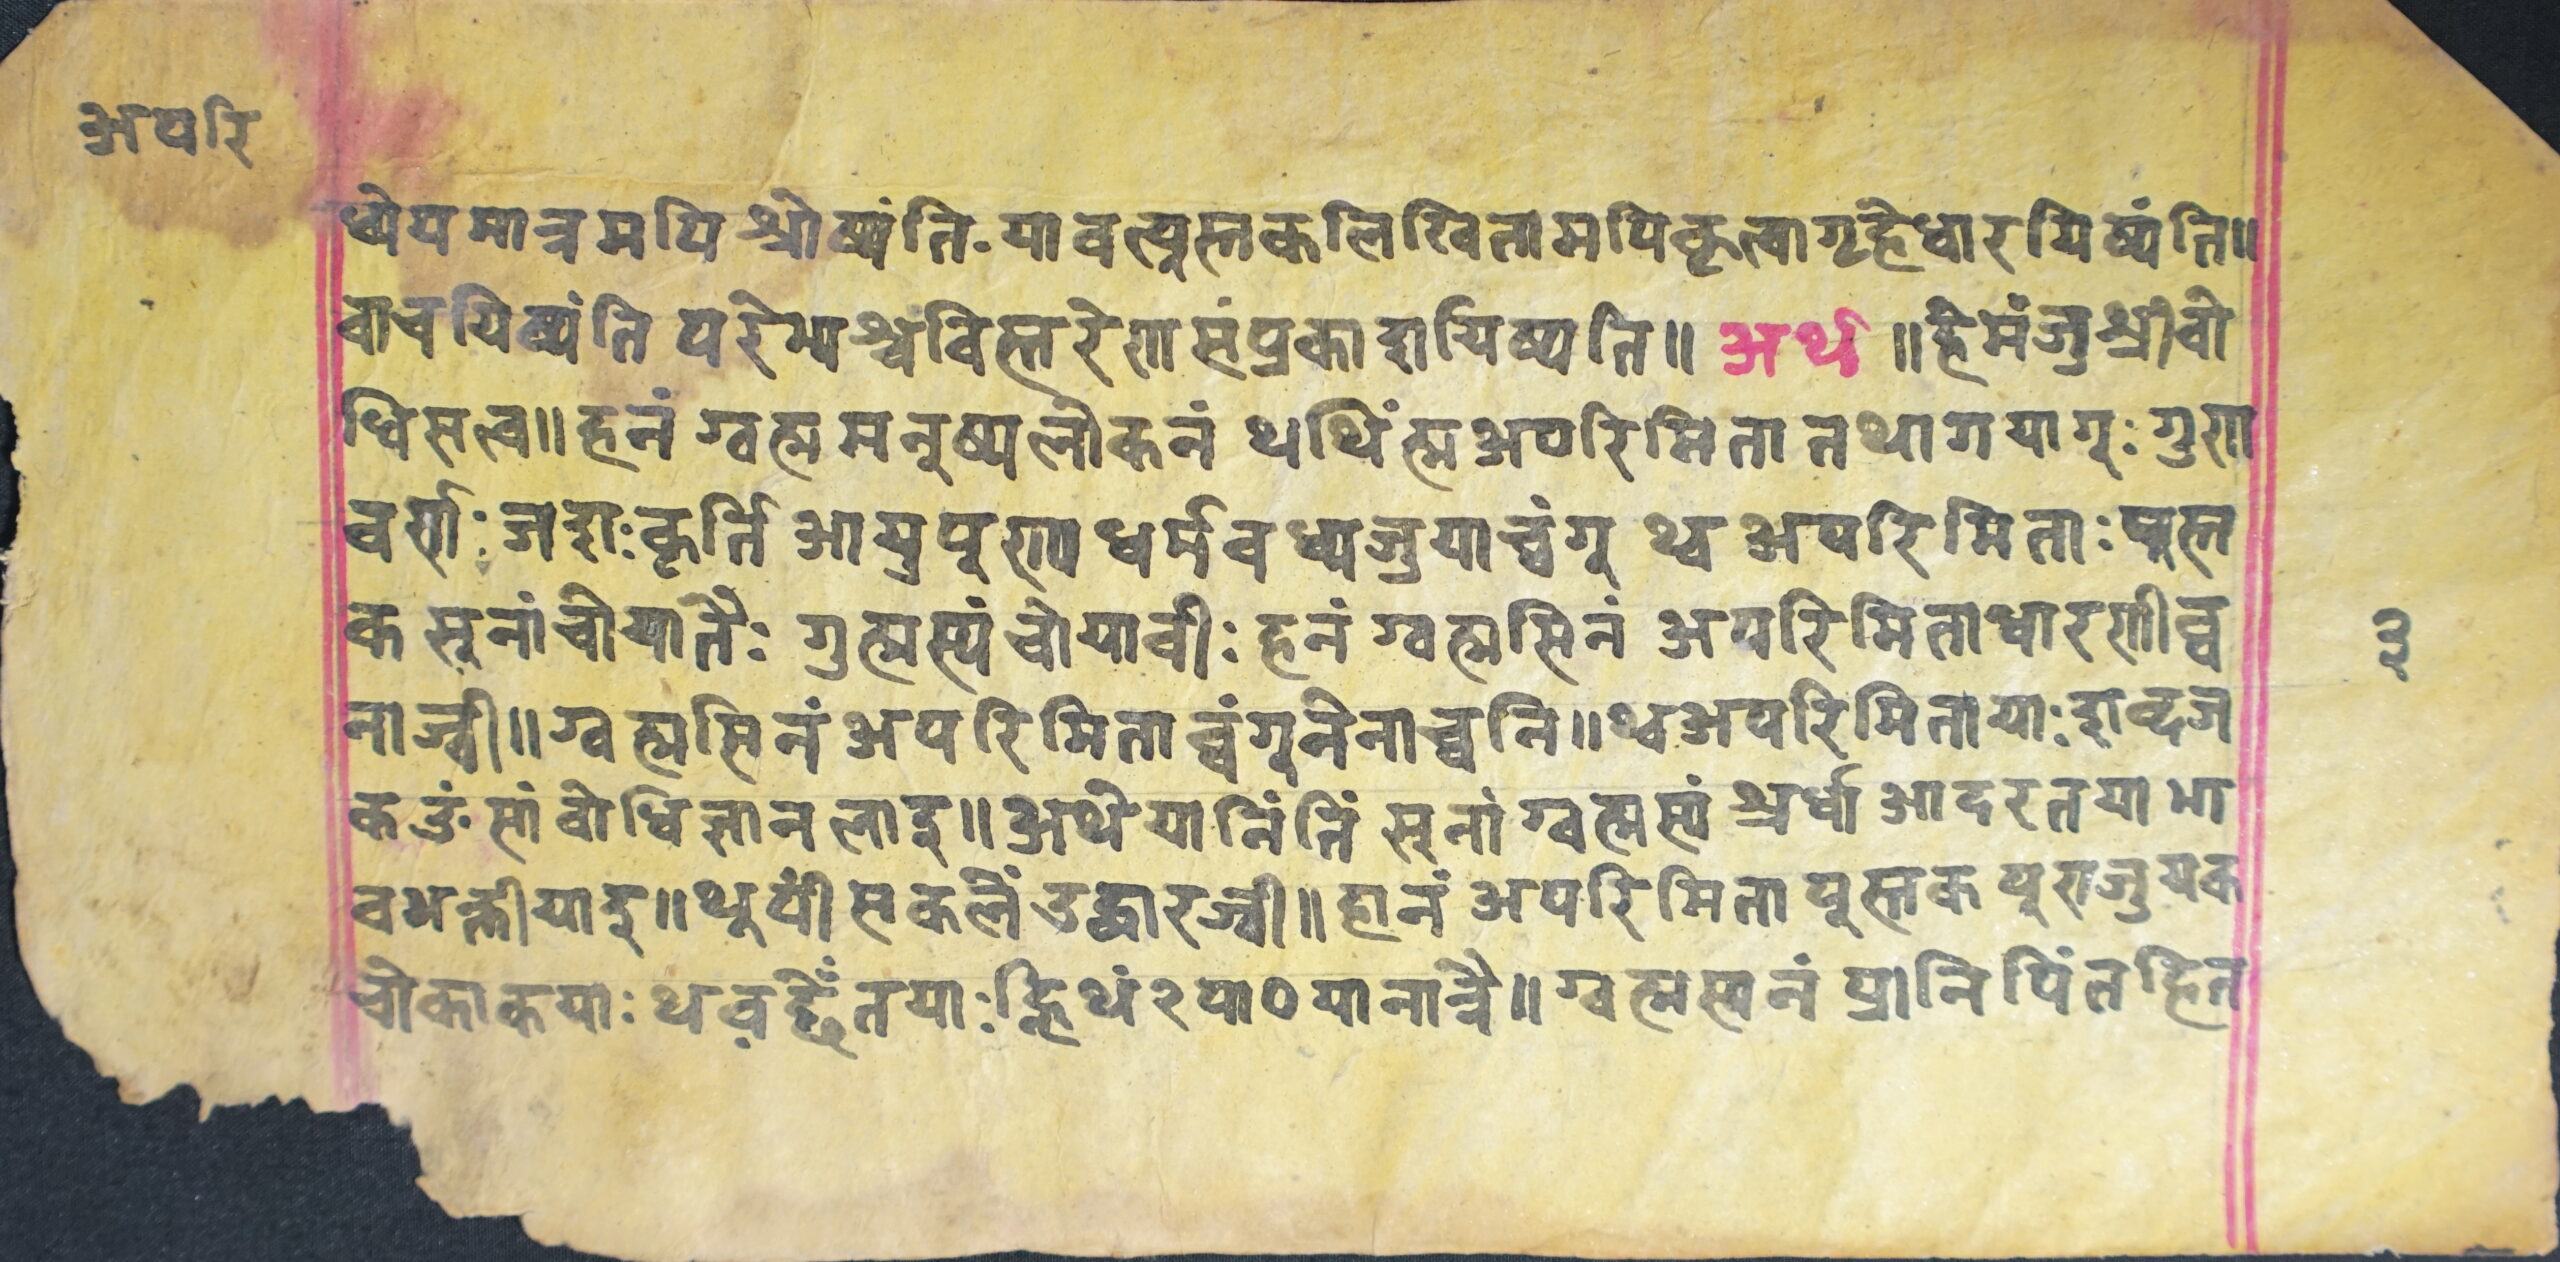 अपरि
ध्येयमात्रमपि श्रोष्यंति. यावत्पुस्तकलिखितामपिकृत्वागृहेधारयिष्यंति॥
वाचयिष्यंति परेभ्यश्चविस्तरेणसंप्रकाशयिष्यति॥ अर्थ ॥हेमंजुश्रीवो
धिसत्व॥हनं ग्वह्ममनुष्यलोकनं थथिंह्मअपरिमितातथागयागूः गुण
वर्णः जशःकृर्त्ति आयुपूराण धर्मवध्यजुयाच्वंगू थ्व अपरिमिताः पुस्त
क सूनांचोयातैः गुह्मस्यं चोयावीः हनं ग्वह्मसिनं अपरिमिताधारणीब्व
नाज्वी॥ग्वह्मसिनं अपरिमिताच्वंगूनेनाच्वनि॥थ्वअपरिमितायाःशब्दज
क ङंसां वोधिज्ञानलाइ॥अथेयानिंतिं सूनां ग्वह्मस्यां श्रर्धा आदरतया भा
वभक्तीयाइ॥थुपीं सकलें उद्धारज्वी॥हानं अपरिमिता पुस्तक पुराजुयक
चोकाकयाः थव तयाः थं२ पा०यानातै॥ग्वह्मस्यनं प्रानिपिंत हित
३